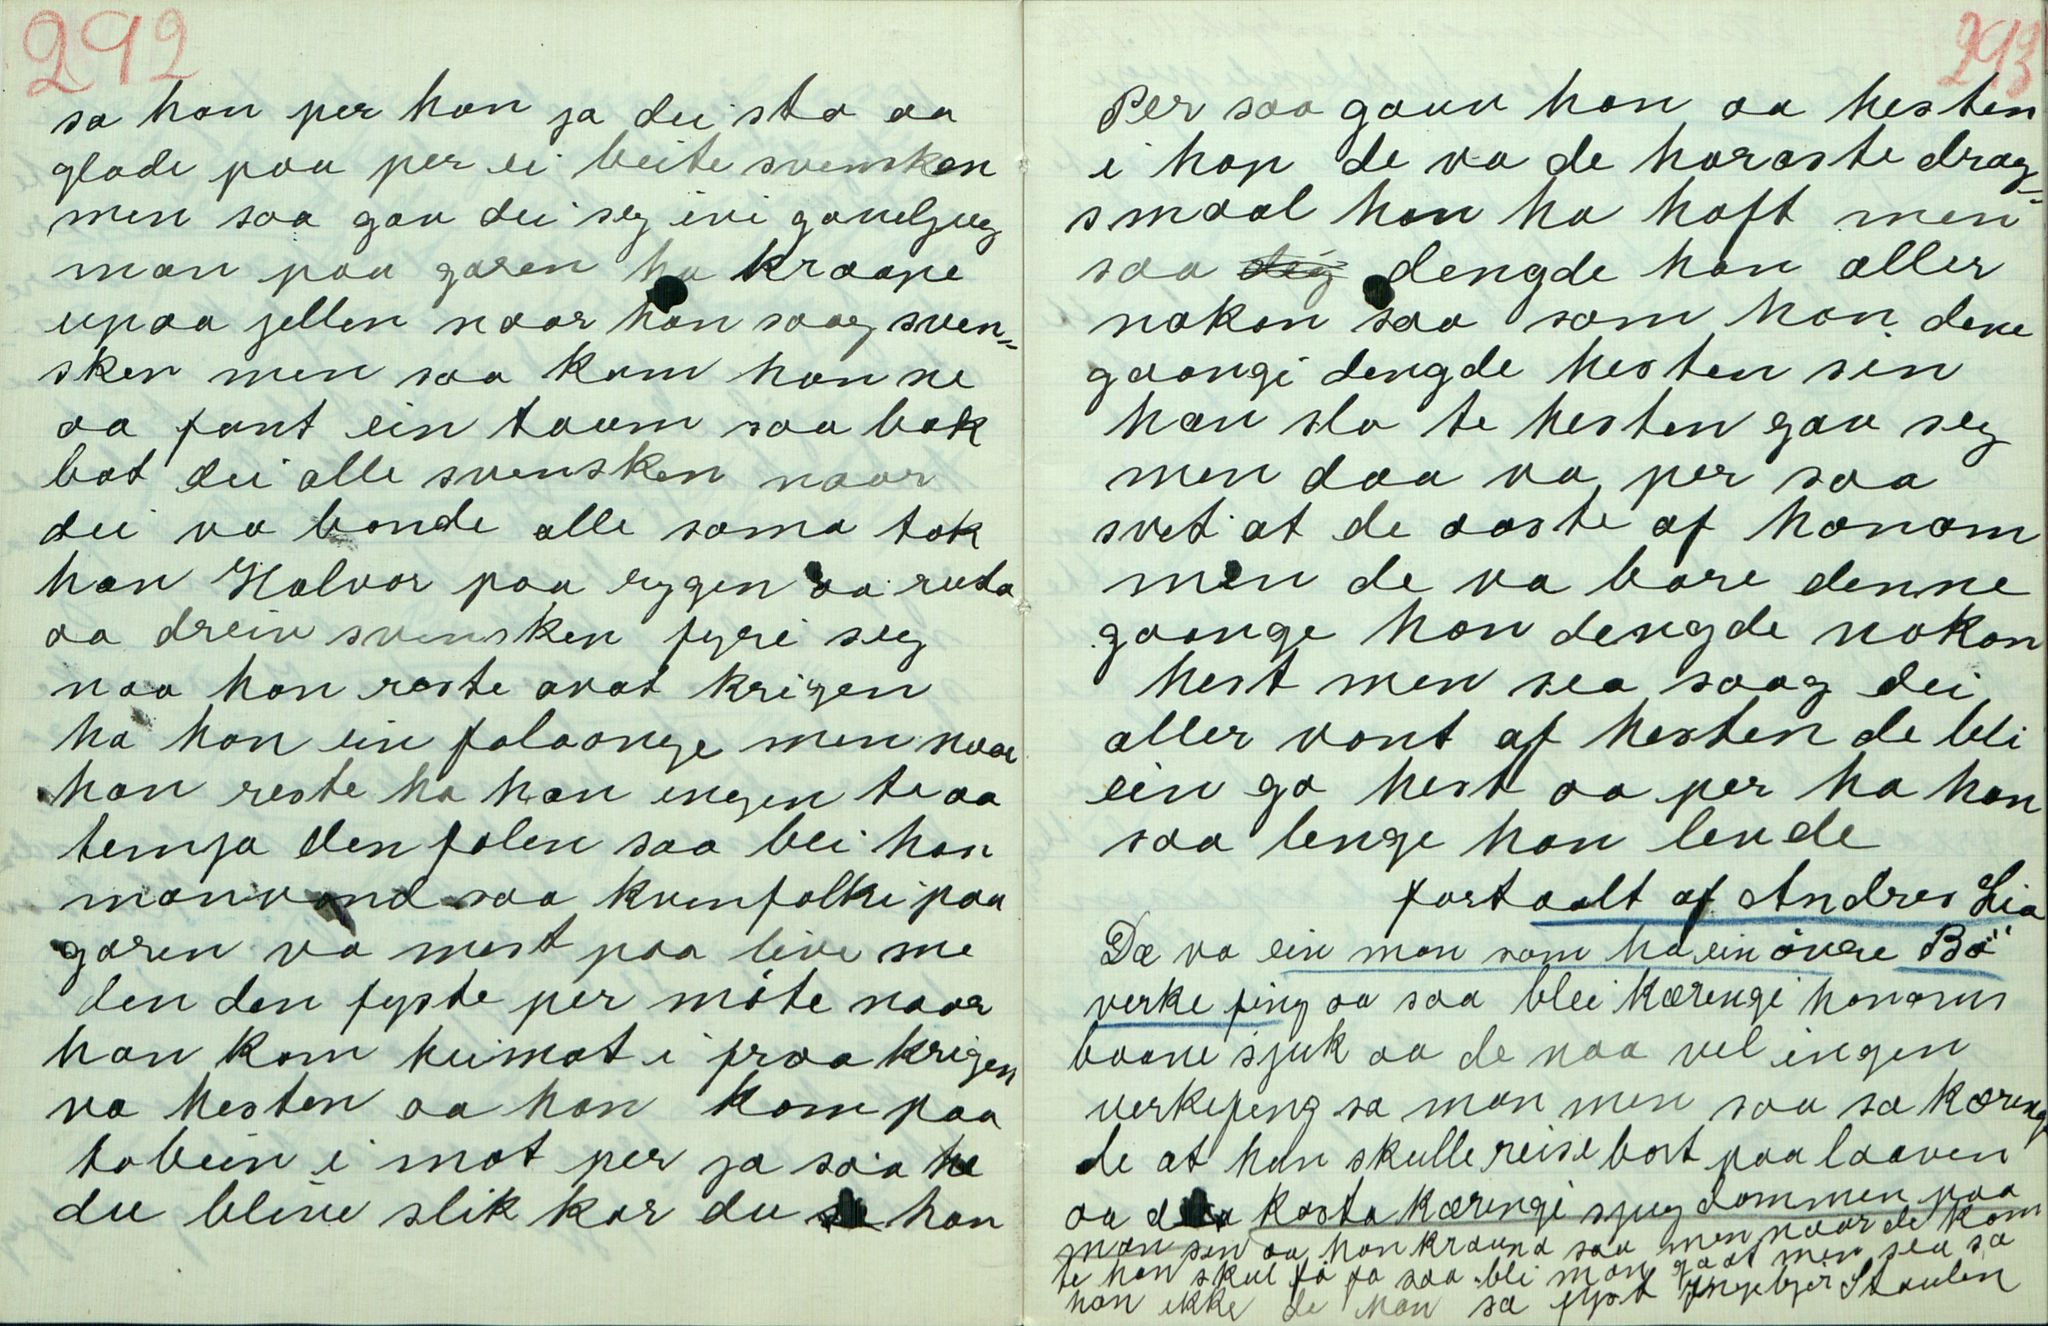 292
sa han per han ja dei sto aa
glade paa per ei beite svensken
men saa gav dei seg ivi gameljug
man paa garen ha kraape
upaa jellen naar han saag sven=
sken men saa kom han ne
aa fant ein taum saa bak
bat dei alle svensken naar
dei va bonde alle sama tok
han Halvor paa rygen aa rusla
aa dreiv svensken fyri seg
naa han reste avat krigen
ha han ein folaonge men naar
han reste ha han engen te aa
temja den folen saa blei han
manvond saa kvinfolki paa
garen va mest paa live me
den den fyste per möte naar
han kom heimat i fraa krigen
va hesten aa han kom paa
tobein i mot per ja saa he
du blivi slik kar du han
293
Per saa gauv han aa hesten
i hop de va de haraste drag=
smaal han ha haft men
saa dengde han aller
nokon saa som han dene
gaongi dengde hesten sin
han slo te hesten gav seg
men daa va per saa
svet at de aoste af honom
men de va bare denne
gaonge han dengde nokon
hest men sea saag dei
aller vont af hesten de bli
ein go hest aa per ha han
saa lenge han levde
fortaalt af Andres Lia
Dæ va ein man som ha ein övre Bö
verke fing aa saa blei kærengi honoms
baane sjuk aa de naa vel ingen
verkefeng sa man men saa sa kærengi
de at han skulle reise bort paa laaven
aa kasta kærengi sjugdommen paa
man sin aa han kraund saa men naar de kom
te han skul fö fo saa bli man gaat men sea sa
han ikke de han sa fyst Ingebjör Staulen